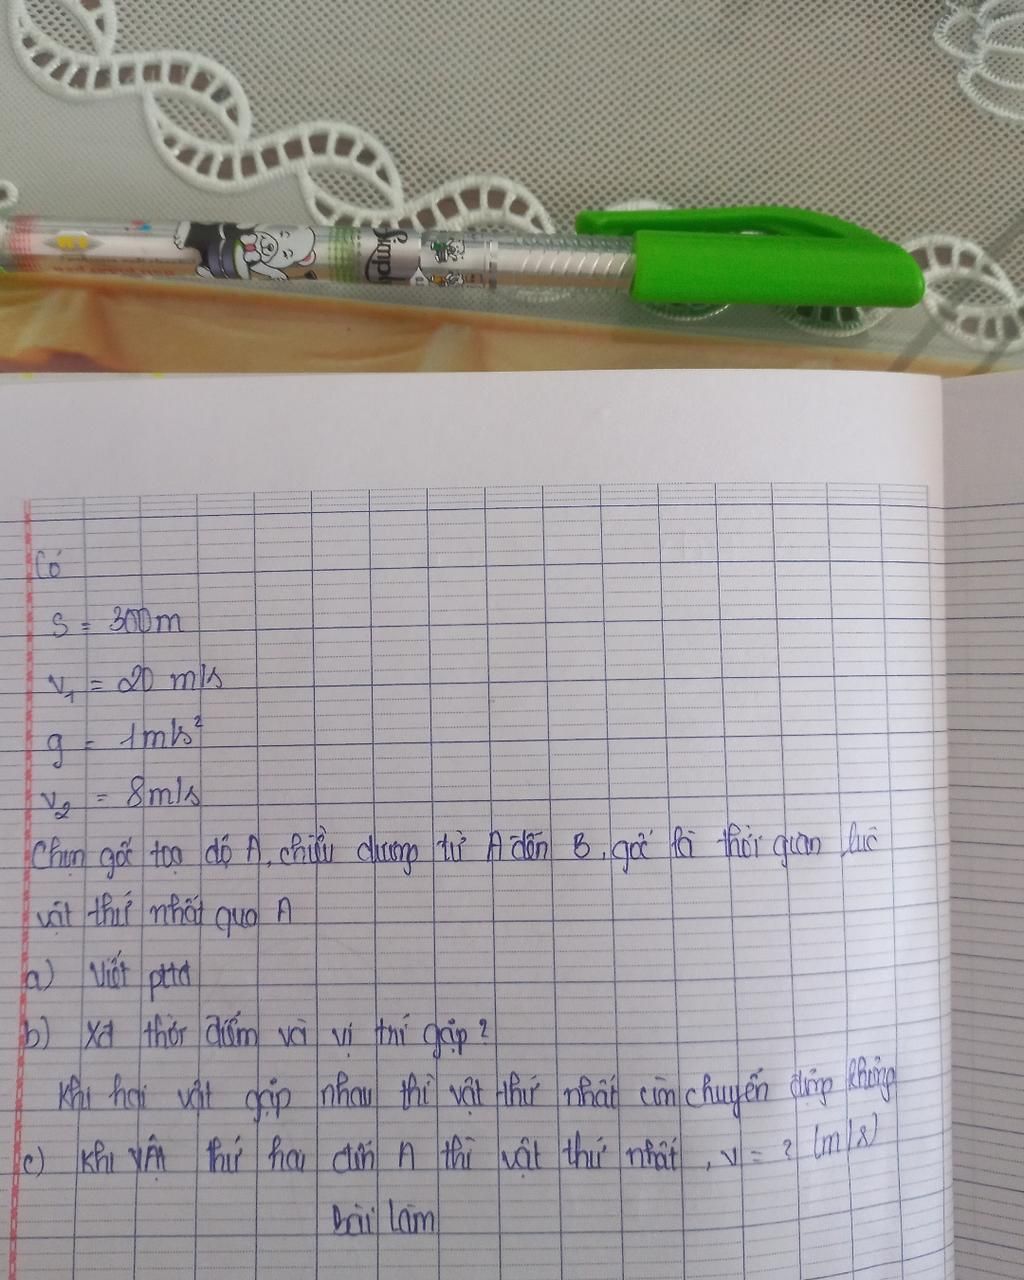 Simpl
Có
S = 300m
v₁ = 20 m/s
g = 1m/s²
v₂ = 8m/s
Chọn gốc tọa độ A, chiều dương từ A đến B, gốc là thời gian lúc
vật thứ nhất qua A
a) Viết pttđ
b) Xđ thời điểm và vị trí gặp?
Khi hai vật gặp nhau thì vật thứ nhất còn chuyển động không
c) Khi vật thứ hai đến A thì vật thứ nhất, v = ? (m/s)
Bài làm